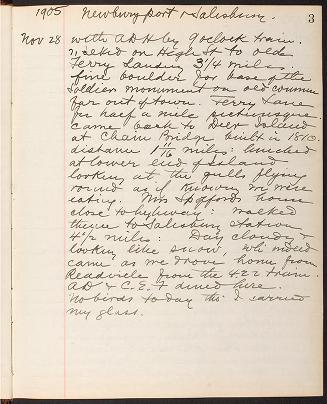 1905 Newburyport & Salisbury. 3
Nov 28 with ADH by 9 oclock train.
walked on High St to old
Ferry Landing 3/4 mile.
fine boulder for base of the
Soldier monument on old common
far out of town. Ferry Lane
for half a mile picturesque
came back to Deer Island
at Chain Bridge built in 1810.
distance 1 1/16 miles: lunched
at lower end of island
looking at the gulls flying
round as if knowing we were
eating. Mrs Spoffords house
close to highway: walked
thence to Salisbury Station
4 1/2 miles: Day cloudy &
looking like snow, wh indeed
came as we drove home from
Readville from the 422 train.
AD & C.E.F dined here.
No birds today tho' I carried
my glass.